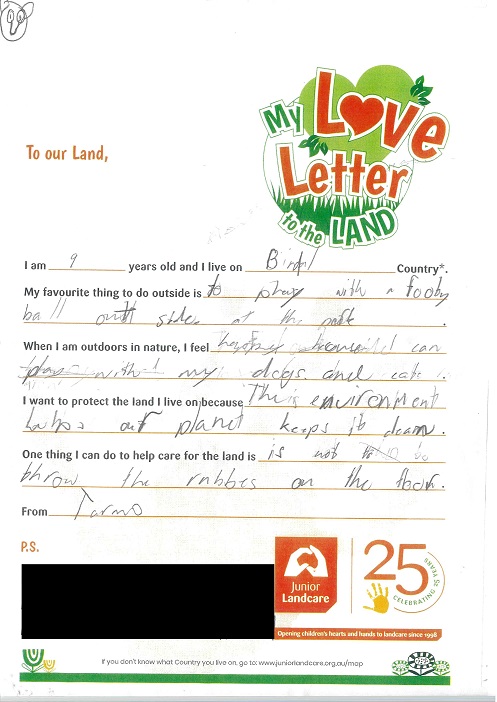 My Love
Letter
to the LAND
To our Land,
I am 9 years old and I live on Country*.
My favourite thing to do outside is to play with a footy
ball out side at the park .
When I am outdoors in nature, I feel because I can
play with my dogs and cats .
I want to protect the land I live on because This environment
our planet keeps it clean.
One thing I can do to help care for the land is is not to
throw the rubbes on the floor.
From Tarmo
P.S.
Junior
Landcare
25 YEARS
CELEBRATING
Opening children's hearts and hands to landcare since 1998
If you don't know what Country you live on, go to: www.juniorlandcare.org.au/map